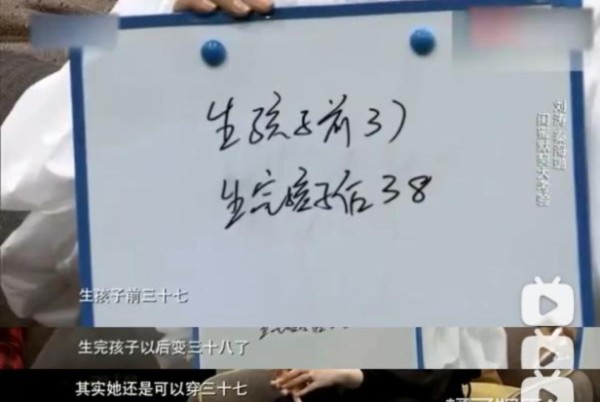 生孩子前37
生完孩子后38
生孩子前三十七
生完孩子以后变三十八了
其实她还是可以穿三十七